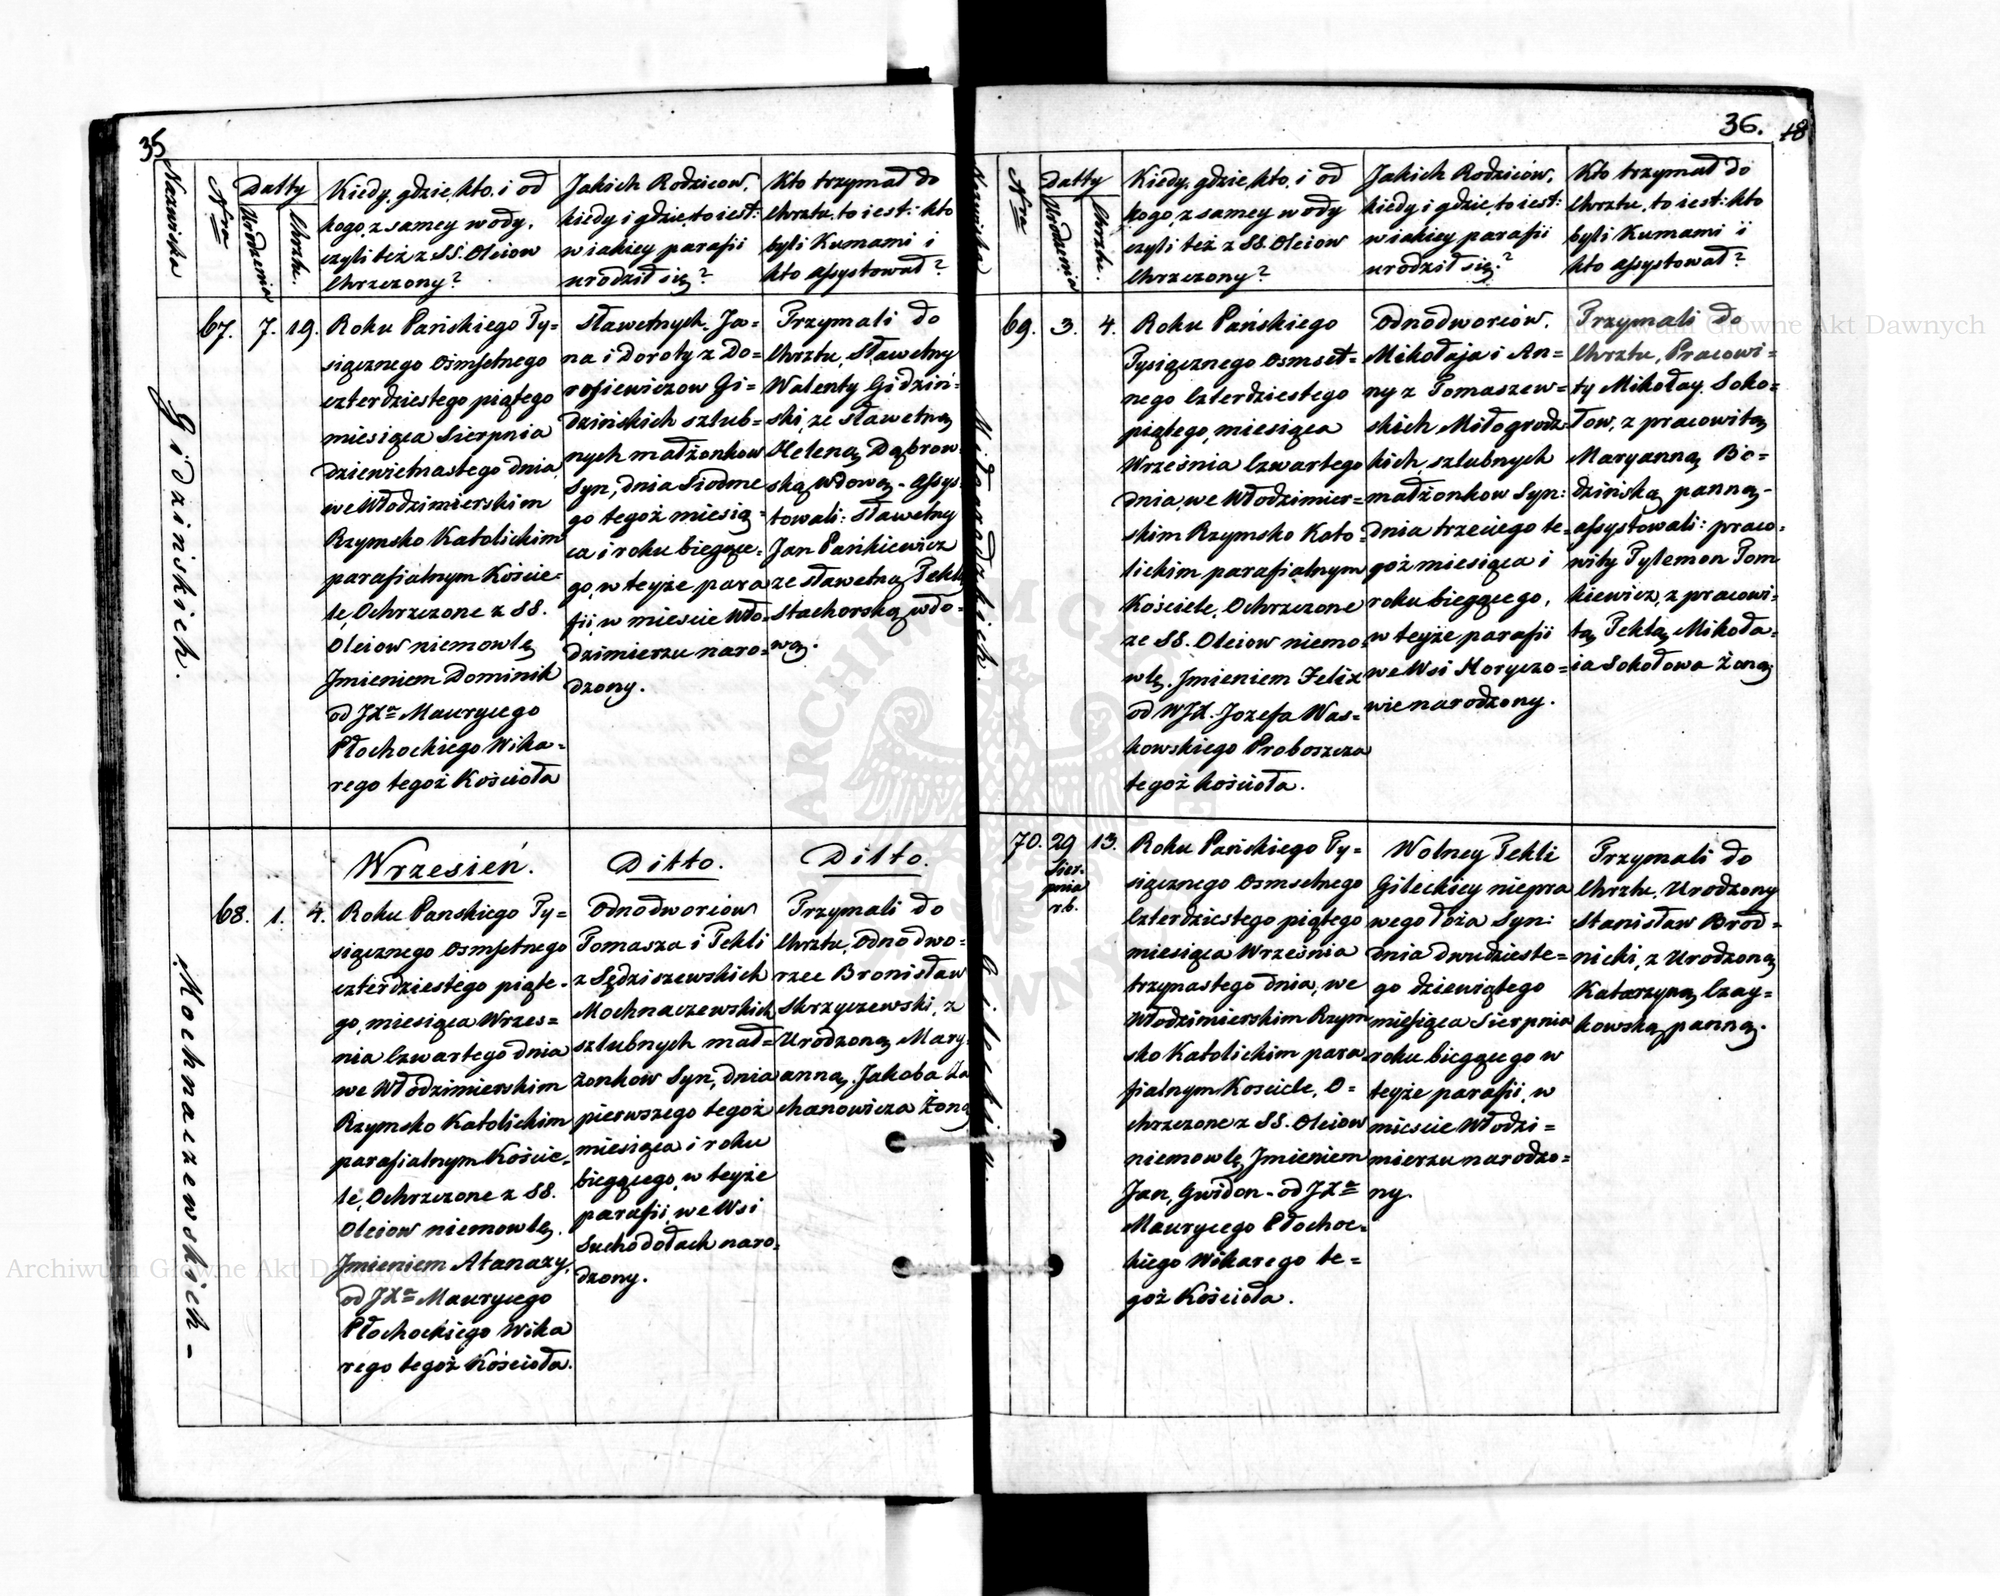 35
Nazwiska
Nro
Datty
Urodzenia
Chrztu.
Kiedy, gdzie, kto, i od
kogo, z samey wody,
czyli też z SS. Oleiow
Chrzczony?
Jakich Rodzicow,
kiedy i gdzie, to iest:
w iakiey parafii
urodził się?
Kto trzymał do
Chrztu, to iest: kto
byli Kumami i
kto assystował?
Gidzińskich.
67.
7.
19.
Roku Pańskiego Ty=
siącznego Osmsetnego
czterdziestego piątego
miesiąca Sierpnia
dziewietnastego dnia,
we Włodzimierskim
Rzymsko Katolickim
parafialnym Koście=
le, Ochrzczone z SS.
Oleiow niemowle
Jmieniem Dominik
od JXa Maurycego
Płochockiego Wika=
rego tegoż Kościoła
Sławetnych, Ja=
na i Doroty z Do=
rosiewiczow Gi=
dzińskich szlub=
nych małżonkow
Syn, dnia Siodme
go tegoż miesią=
ca i roku bieżące=
go, w teyże para
fii, w miescie Wło=
dzimierzu naro=
dzony.
Trzymali do
Chrztu, Sławetny
Walenty Gidziń=
ski, ze Sławetną
Heleną Dąbrow
ską wdową - Assys=
towali: Sławetny
Jan Pańkiewicz
ze sławetną Teklą
Stachorską wdo=
wą.
Mochnaczewskich -
Wrzesień.
Ditto.
Ditto.
68.
1.
4.
Roku Panskiego Ty=
siącznego Osmsetnego
czterdziestego piąte=
go, miesiąca Wrzes=
nia Czwartego dnia
we Włodzimierskim
Rzymsko Katolickim
parafialnym Koście=
le, Ochrzczone z SS.
Oleiow niemowle,
Jmieniem Atanazy,
od JXa Maurycego
Płochockiego Wika
rego tegoż Kościoła.
Odnodworcow
Tomasza i Tekli
z Sędziszewskich
Mochnaczewskich
szlubnych mał=
żonkow Syn, dnia
pierwszego tegoż
miesiąca i roku
bieżącego, w teyże
parafii, we Wsi
Suchodołach naro=
dzony.
Trzymali do
Chrztu, Odnodwo=
rzec Bronisław
Skrzyczewski, z
Urodzoną Mary=
anną, Jakoba Ła
chanowicza Żoną
36.
18
Nazwiska
Nro
Datty
Urodzenia
Chrztu.
Kiedy, gdzie, kto, i od
kogo, z samey wody
czyli też z SS. Oleiow
Chrzczony?
Jakich Rodziców,
kiedy i gdzie, to iest:
w iakiey parafii
urodził się?
Kto trzymał do
Chrztu, to iest: kto
byli Kumami i
kto assystował?
Miłogrodzkich.
69.
3.
4.
Roku Pańskiego
Tysiącznego Osmset=
nego Czterdziestego
piątego, miesiąca
Września Czwartego
dnia, we Włodzimier=
skim Rzymsko Kato=
lickim parafialnym
Kościele, Ochrzczone
ze SS. Oleiow niemo=
wlę, Jmieniem Felix
od WJX. Jozefa Was=
kowskiego Proboszcza
tegoż kościoła.
Odnodworców,
Mikołaja i An=
ny z Tomaszew=
skich Miłogrodz=
kich, szlubnych
małżonkow Syn:
dnia trzeciego te=
goż miesiąca i
roku bieżącego,
w teyże parafii
we Wsi Horyczo=
wie narodzony.
Trzymali do
Chrztu, Pracowi=
ty Mikołay Soko=
łow, z pracowitą
Maryanną Bo=
dzińską panną -
assystowali: praco=
wity Fylemon Tom
kiewicz, z pracowi=
tą Teklą Mikoła=
ia Sokołowa Żoną
Gileckiey.
70.
29
Sier=
pnia
r.b.
13.
Roku Pańskiego Ty=
siącznego Osmsetnego
Czterdziestego piątego
miesiąca Września
trzynastego dnia, we
Włodzimierskim Rzym
sko Katolickim para
fialnym Kosciele, O=
chrzczone z SS. Oleiow
niemowlę Jmieniem
Jan, Gwidon - od JXa
Maurycego Płochoc=
kiego Wikarego te=
goż Kościoła.
Wolney Tekli
Gileckiey niepra
wego łoża Syn:
dnia dwudzieste=
go dziewiątego
miesiąca Sierpnia
roku bieżącego w
teyże parafii, w
miescie Włodzi=
mierzu narodzo=
ny.
Trzymali do
Chrztu, Urodzony
Stanisław Brod=
nicki, z Urodzoną
Katarzyną Czay=
kowską panną.
Archiwum Główne Akt Dawnych
Archiwum Główne Akt Dawnych